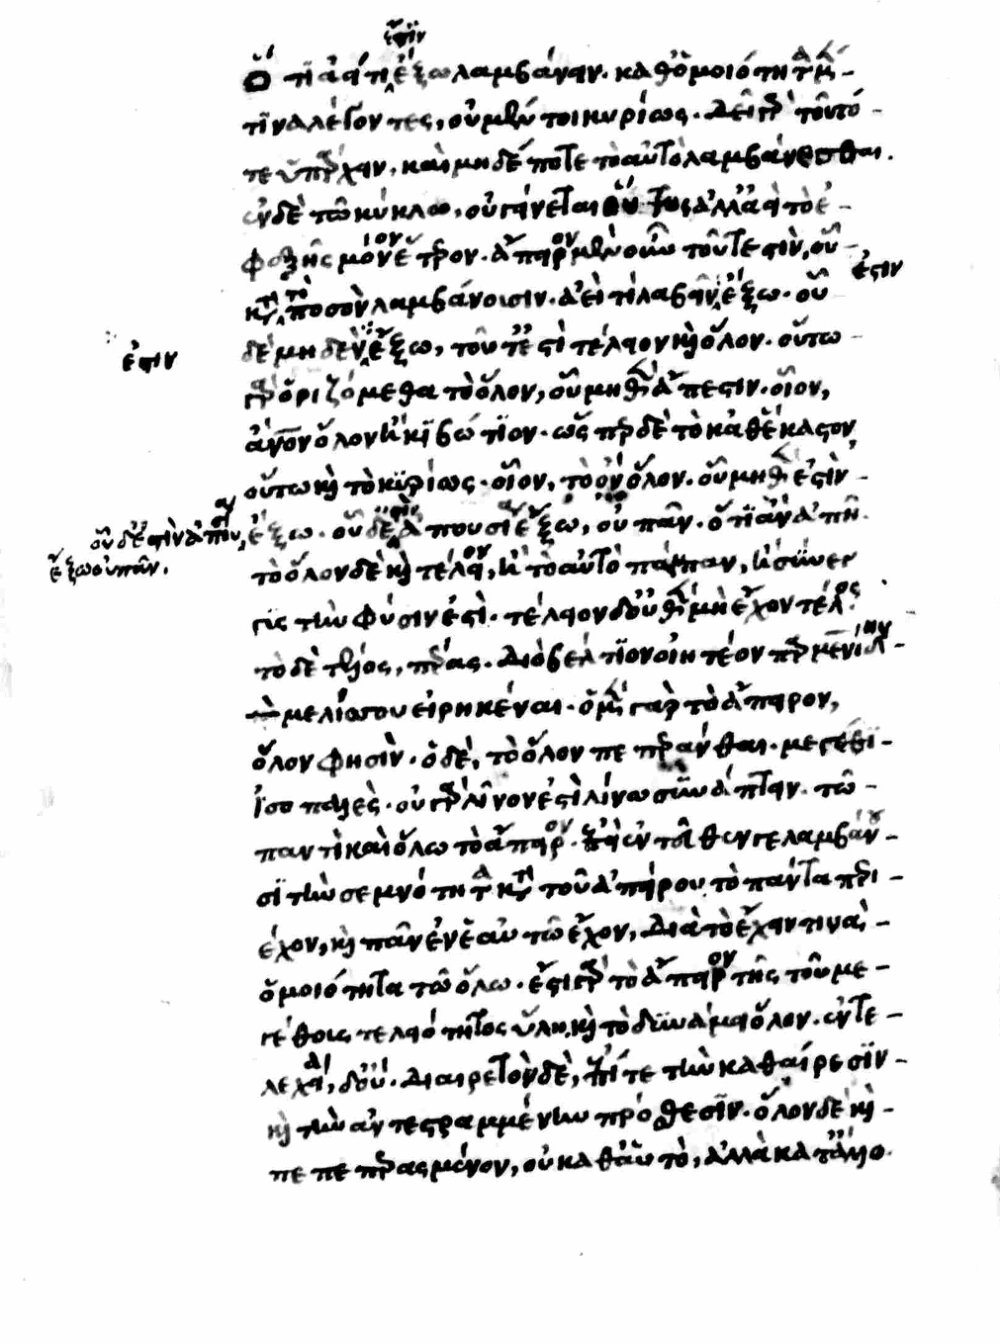 Ὅτι ἀεί τι ἔξω λαμβάνειν· καθ' ὁμοιότητα μέν
ἐστιν
τινα λέγοντες, οὐ μέντοι κυρίως. Δεῖ γὰρ τοῦτό
τε ὑπάρχειν, καὶ μηδέποτε τὸ αὐτὸ λαμβάνεσθαι.
ἐν δὲ τῶ κύκλω, οὐ γίνεται οὕτως ἀλλ' ἀεὶ τὸ ἐ
φεξῆς μόνον ἕτερον. ἄπειρον μὲν οὖν τοῦτ' ἐστὶν, οὗ
κατὰ τὸ ποσὸν λαμβάνουσιν. ἀεί τι λαβεῖν ἔξω. οὗ
ἔστιν
δὲ μηδὲν ἔξω, τοῦτ' ἐστὶ τέλειον καὶ ὅλον. οὕτω
ἔστιν
γὰρ ὁριζόμεθα τὸ ὅλον, οὗ μηθὲν ἄπεστιν. οἷον,
ἄνθρωπον ὅλον ἢ κιβώτιον. ὥσπερ δὲ τὸ καθ' ἕκαστον
οὕτω καὶ τὸ κυρίως. οἷον, τὸ ὅλον. οὗ μηθέν ἐστιν
ἔξω. οὗ δὲ ἀπουσία ἔξω, οὐ πᾶν. ὅτι ἂν ἀπῆ.
οὗ δ' ἐστὶν ἀπουσία
ἔξω οὐ πᾶν.
τὸ ὅλον δὲ καὶ τέλειον, ἢ τὸ αὐτὸ πάμπαν, ἢ σύνεγ
γυς τὴν φύσιν ἐστὶ. τέλειον δ' οὐθὲν μὴ ἔχον τέλος.
τὸ δὲ τέλος, πέρας. Διὸ βέλτιον οἰητέον παρμενίδην
μελίσσου εἰρηκέναι. ὁ μὲν γὰρ τὸ ἄπειρον,
ὅλον φησὶν. ὁ δὲ, τὸ ὅλον πεπεράνθαι. μεσόθε
ἰσοπαλὲς. οὐ γὰρ λῖνον ἐστὶ λίνω συνάπτειν. τῶ
παντὶ καὶ ὅλω τὸ ἄπειρον. ἐπεὶ ἐντεῦθεν γε λαμβάνου
σι τὴν σεμνότητα κατὰ τοῦ ἀπείρου. τὸ πάντα περι
έχον, καὶ πᾶν ἐν ἑαυτῶ ἔχον, Διὰ τὸ ἔχειν τινὰ
ὁμοιότητα τῶ ὅλω. ἔστι γὰρ τὸ ἄπειρον τῆς τοῦ με
γέθους τελειότητος ὕλη. καὶ τὸ δυνάμει ὅλον. ἐντε
λεχεία, δ' οὔ. Διαιρετὸν δὲ, ἐπί τε τὴν καθαίρεσιν
καὶ τὴν ἀντεστραμμένην πρόσθεσιν. ὅλον δὲ καὶ
πεπερασμένον, οὐ καθ' αὑτὸ, ἀλλὰ κατ' ἄλλο.